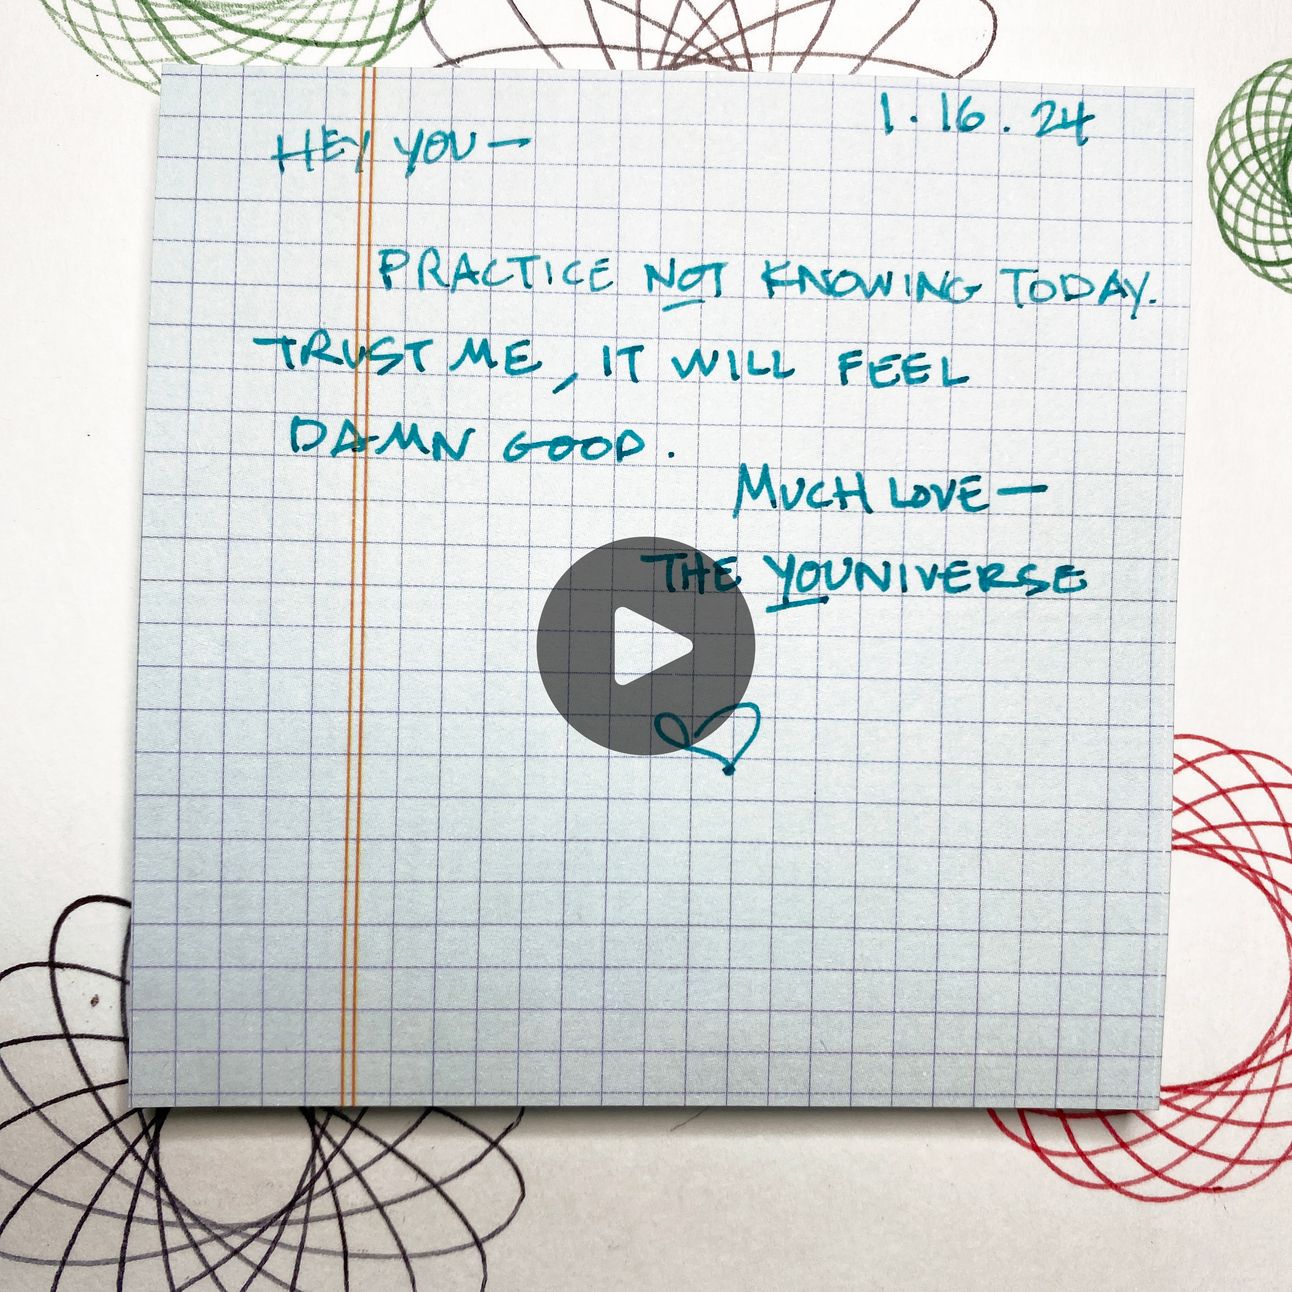 1.16.24
HEY YOU—
PRACTICE NOT KNOWING TODAY.
TRUST ME, IT WILL FEEL
DAMN GOOD.
MUCH LOVE—
THE YOUNIVERSE